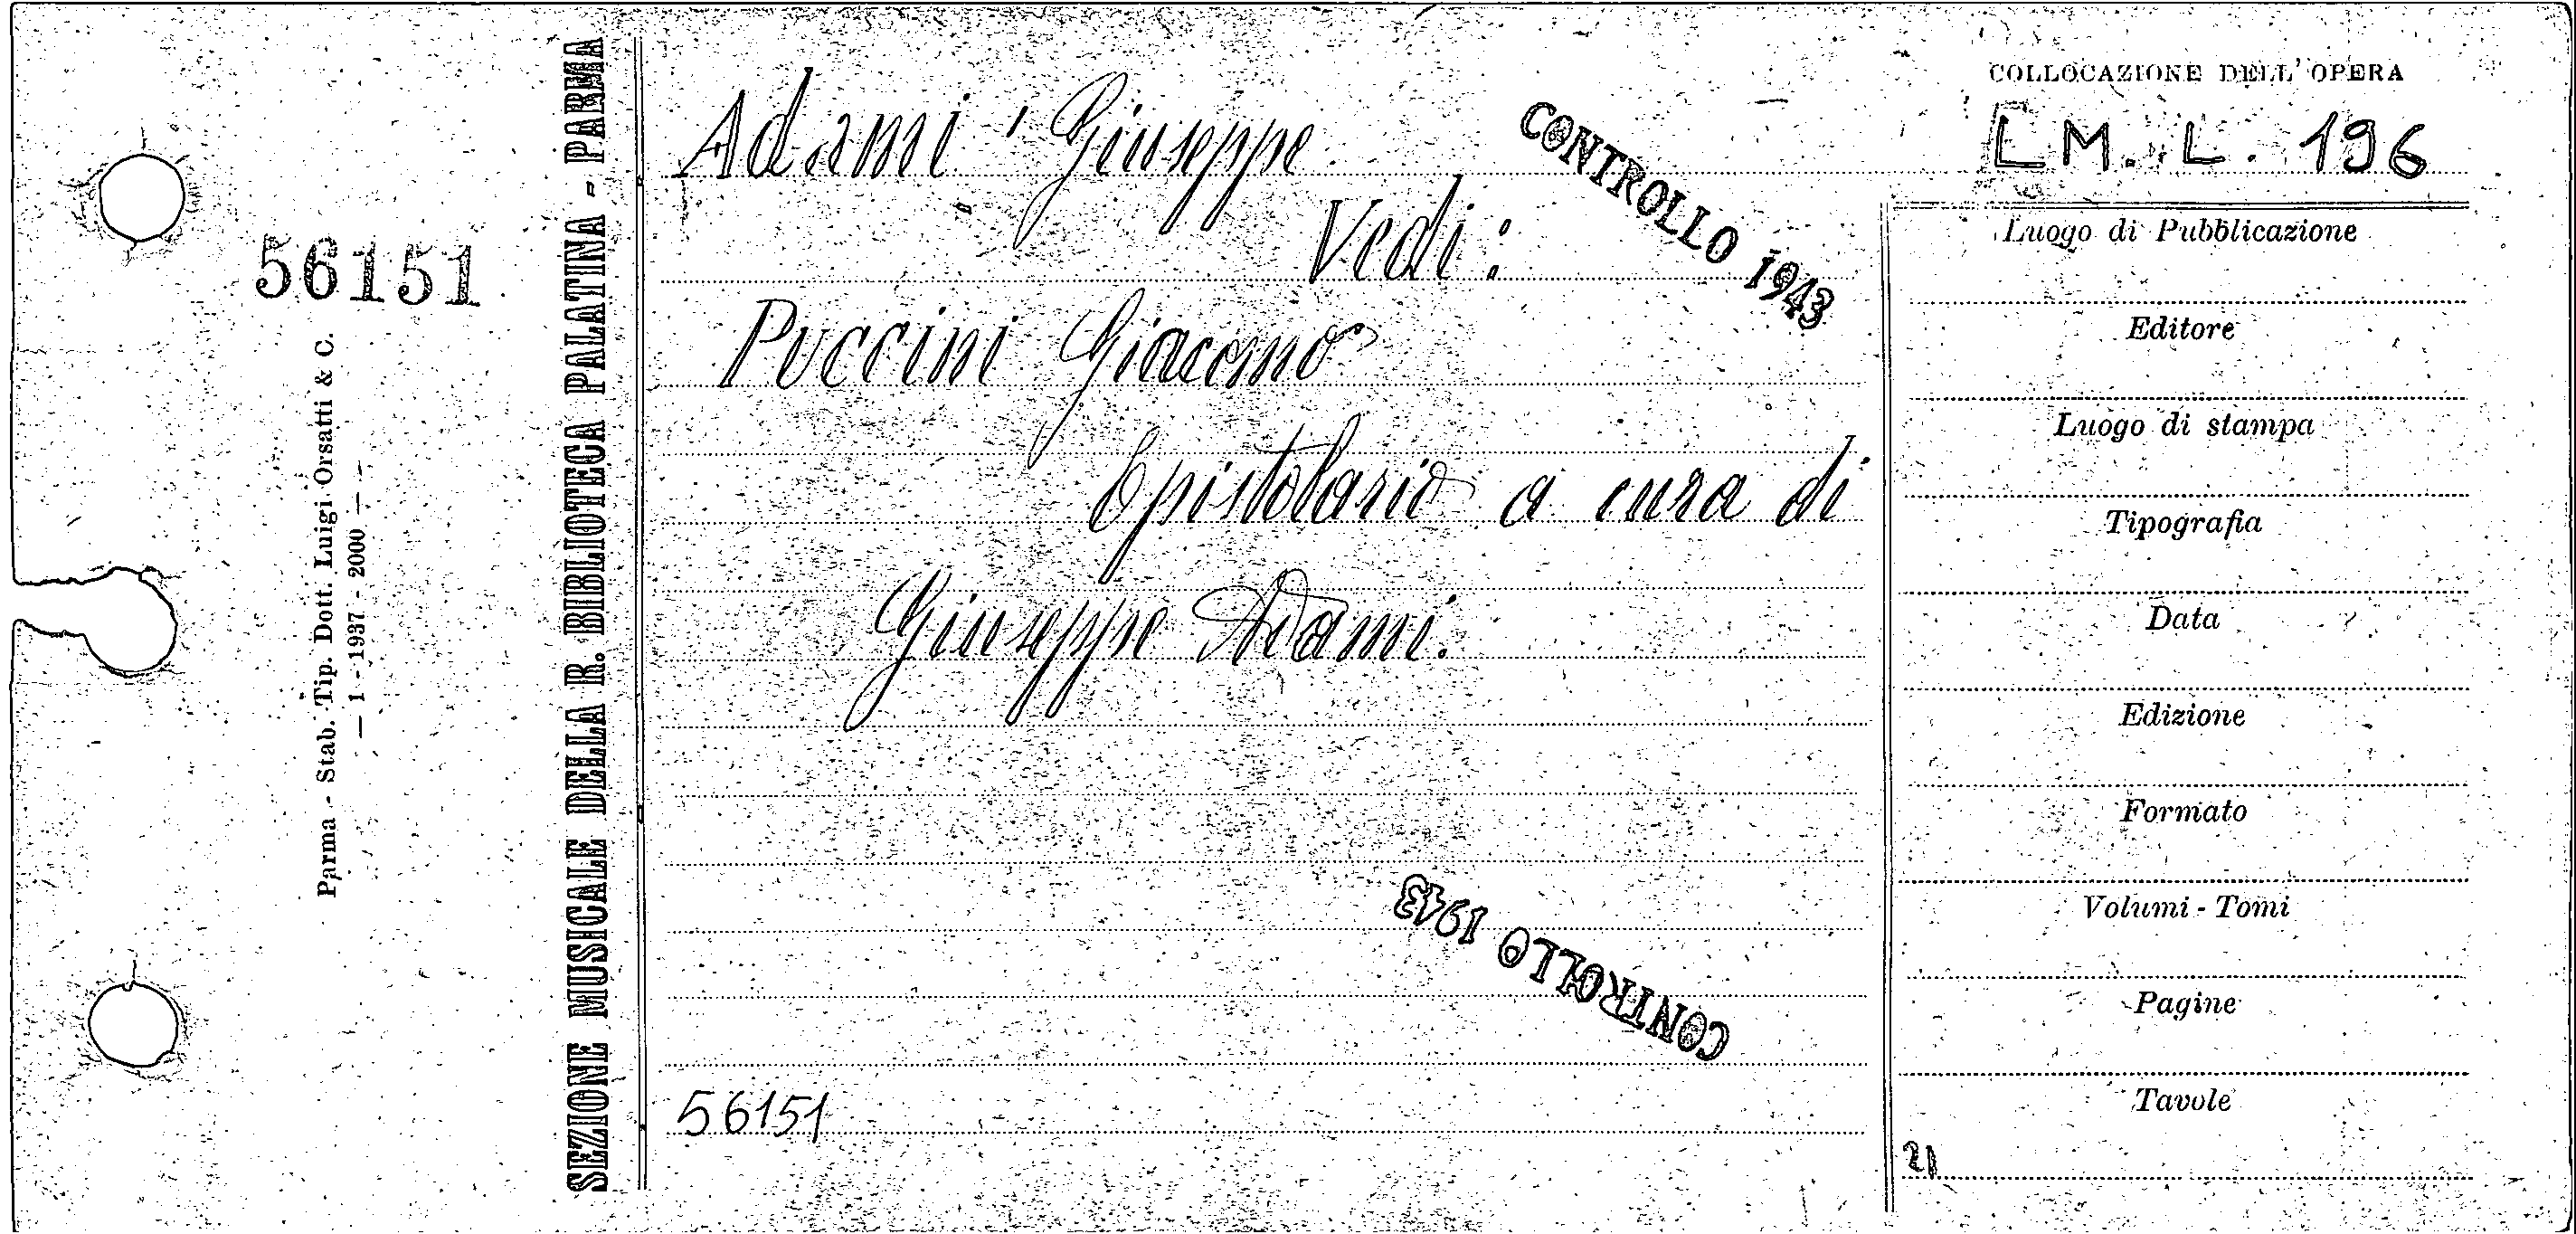 56151
Parma - Stab. Tip. Dott. Luigi Orsatti & C.
— 1 - 1937 - 2000 — —
SEZIONE MUSICALE DELLA R. BIBLIOTECA PALATINA - PARMA
Adami Giuseppe
Vedi:
Puccini Giacomo
Epistolario a cura di
Giuseppe Adami.
CONTROLLO 1943
CONTROLLO 1943
56151
COLLOCAZIONE DELL'OPERA
L M. L. 196
Luogo di Pubblicazione
Editore
Luogo di stampa
Tipografia
Data
Edizione
Formato
Volumi - Tomi
Pagine
Tavole
21